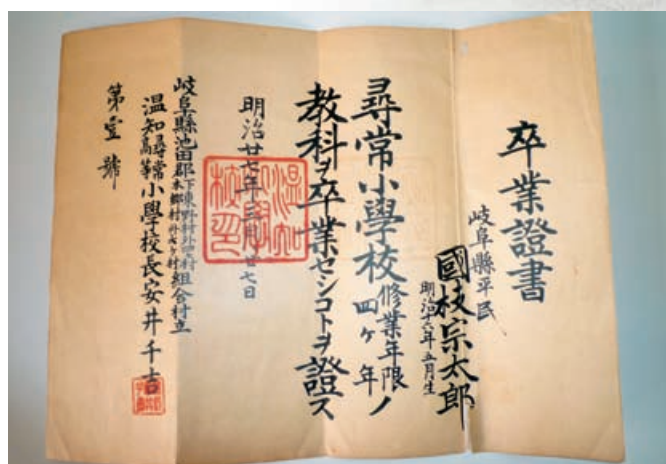 卒業證書
岐阜縣平民
國枝宗太郎
明治六年五月生
尋常小學校修業年限四ヶ年ノ
教科ヲ卒業セシコトヲ證ス
明治廿七年三月廿七日
岐阜縣池田郡下東野村外四村本郷村外七ヶ村組合村立
温知尋常高等小學校長安井千吉
第壹號